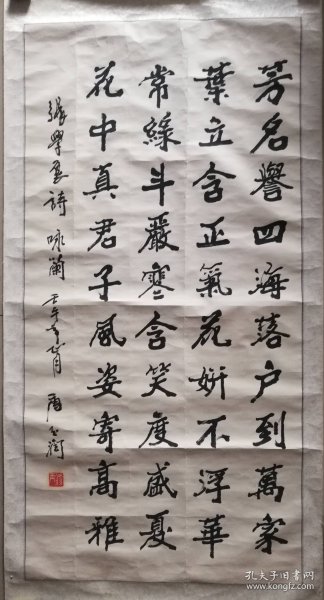 芳名譽四海落户到萬家
葉立含正氣花妍不浮華
常綠斗嚴寒含笑度盛夏
花中真君子風姿寄高雅
張學良詩咏蘭
孔夫子旧书网